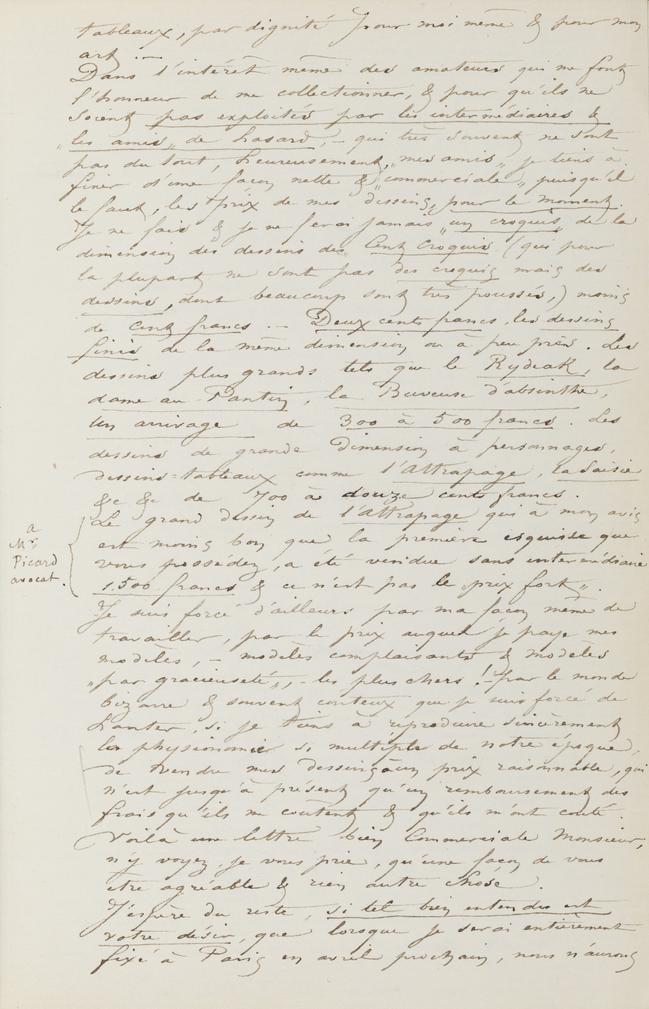 tableaux, par dignité pour moi même & pour mon
art. —
Dans l'intérêt même des amateurs qui me font
l'honneur de me collectionner, & pour qu'ils ne
soient pas exploités par les intermédiaires &
"les amis" de hasard, - qui très souvent ne sont
pas du tout, heureusement, "mes amis" je tiens à
fixer d'une façon nette & "commerciale" puisqu'il
le faut, les prix de mes dessins, pour le moment.
Je ne fais & je ne ferai jamais "un croquis" de la
dimension des dessins des Cent Croquis (qui pour
la plupart ne sont pas des croquis mais des
dessins, dont beaucoup sont très poussés,) moins
de Cent francs. — Deux cents francs, les dessins
finis de la même dimension ou à peu près. Les
dessins plus grands tels que le Rydeak, la
dame au Pantin, la Buveuse d'absinthe,
un arrivage de 300 à 500 francs. Les
dessins de grande dimension à personnages,
dessins-tableaux comme l'Attrapage, la Saisie
&c &c de 700 à douze cents francs.
Le grand dessin de l'Attrapage qui à mon avis
est moins bon que la première esquisse que
vous possédez, a été vendue sans intermédiaire
1.500 francs & ce n'est pas le "prix fort".
a
Mr
Picard
avocat.
Je suis forcé d'ailleurs par ma façon même de
travailler, par le prix auquel je paye mes
modèles, - modèles complaisants & modèles
"par gracieuseté", - les plus chers! par le monde
bizarre & souvent couteux que je suis forcé de
hanter, si je tiens à reproduire sincèrement
la physionomie si multiple de notre époque,
de vendre mes dessins à un prix raisonnable, qui
n'est jusqu'à présent qu'un remboursement des
frais qu'ils me coutent & qu'ils m'ont couté.
Voilà une lettre bien Commerciale Monsieur,
n'y voyez, je vous prie, qu'une façon de vous
être agréable & rien autre chose.
J'espère du reste, si tel bien entendu est
votre désir, que lorsque je serai entièrement
fixé à Paris en avril prochain, nous n'aurons